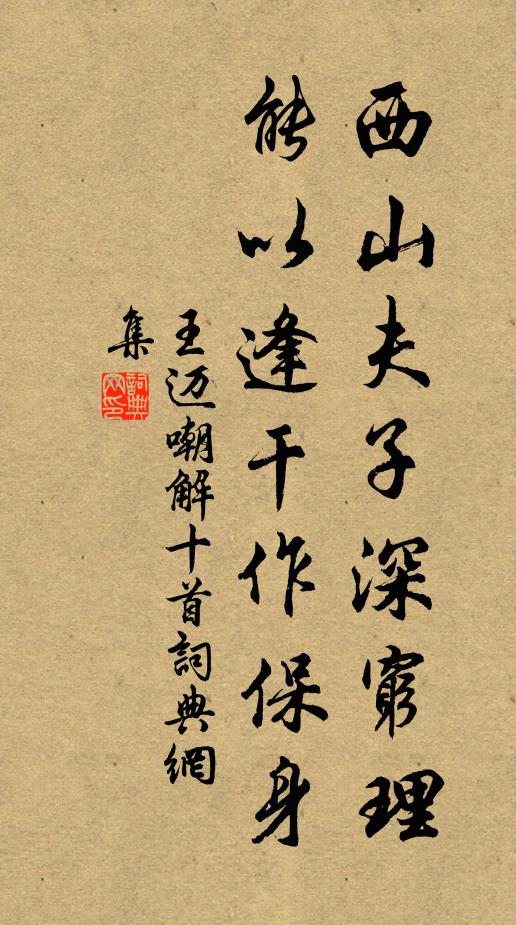 西山夫子深窮理
能以逢干作保身
王迈嘲解十首詞典網
集
詞典網印